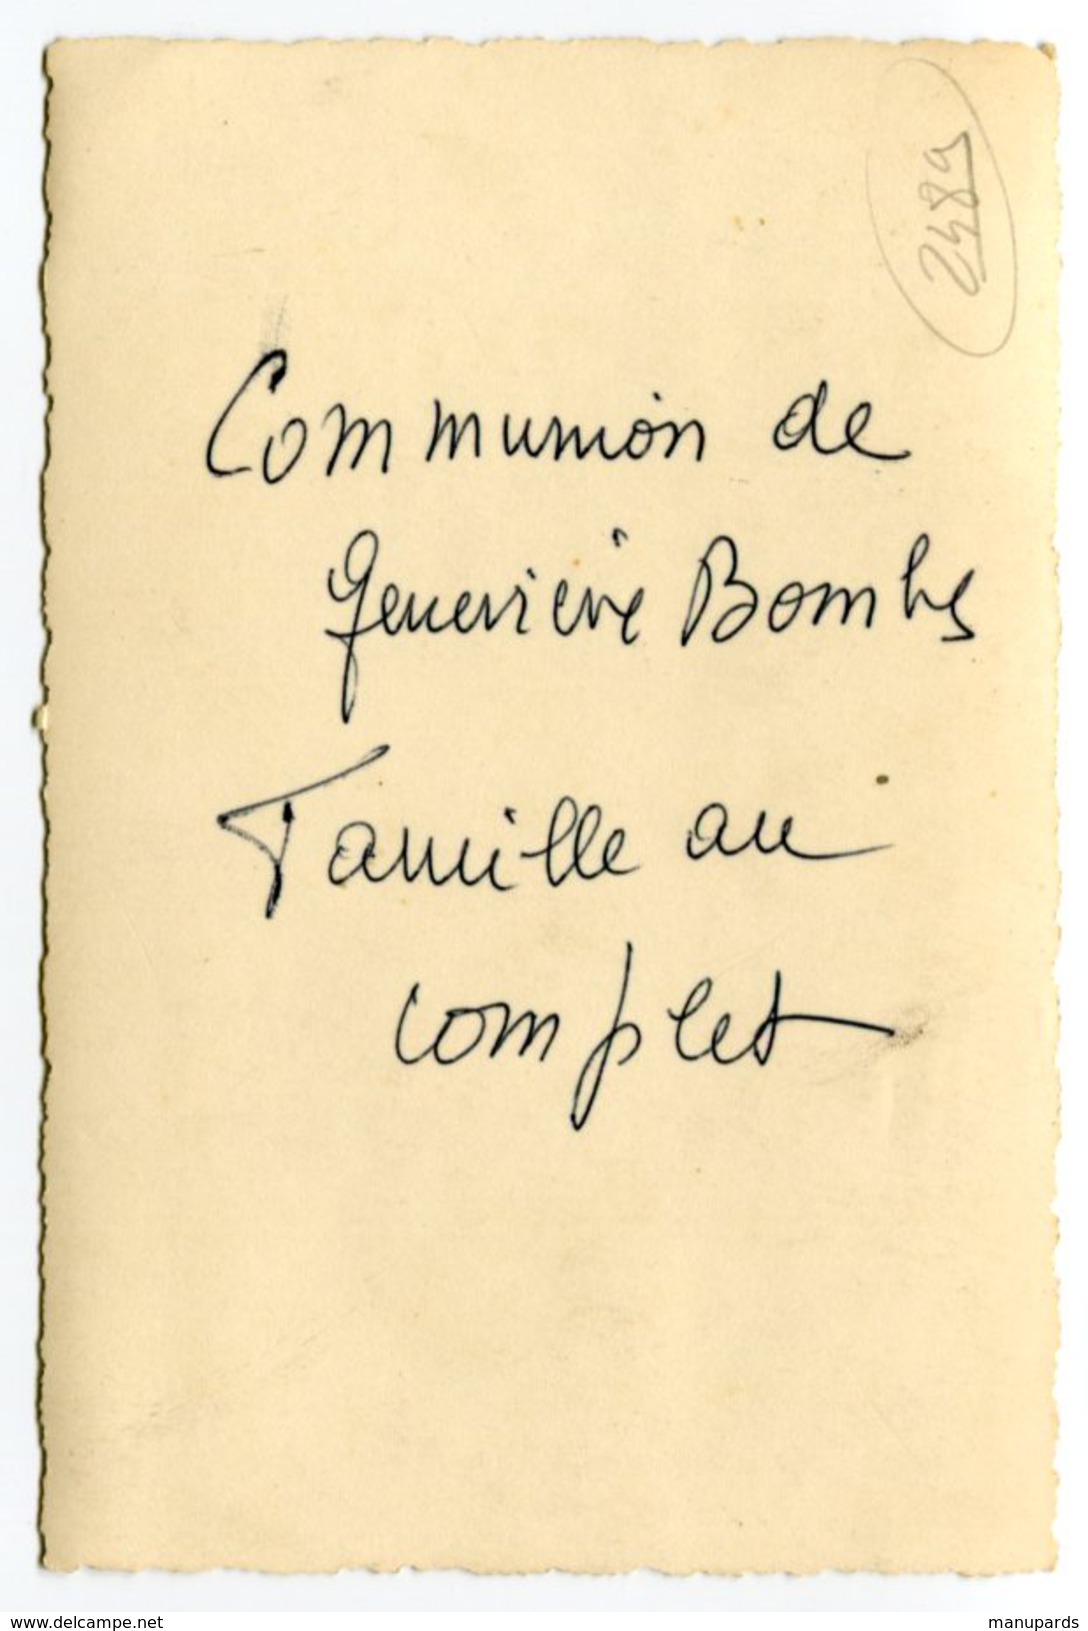 2489
Communion de
Geneviève Bombes
Famille au
complet
www.delcampe.net
manupards